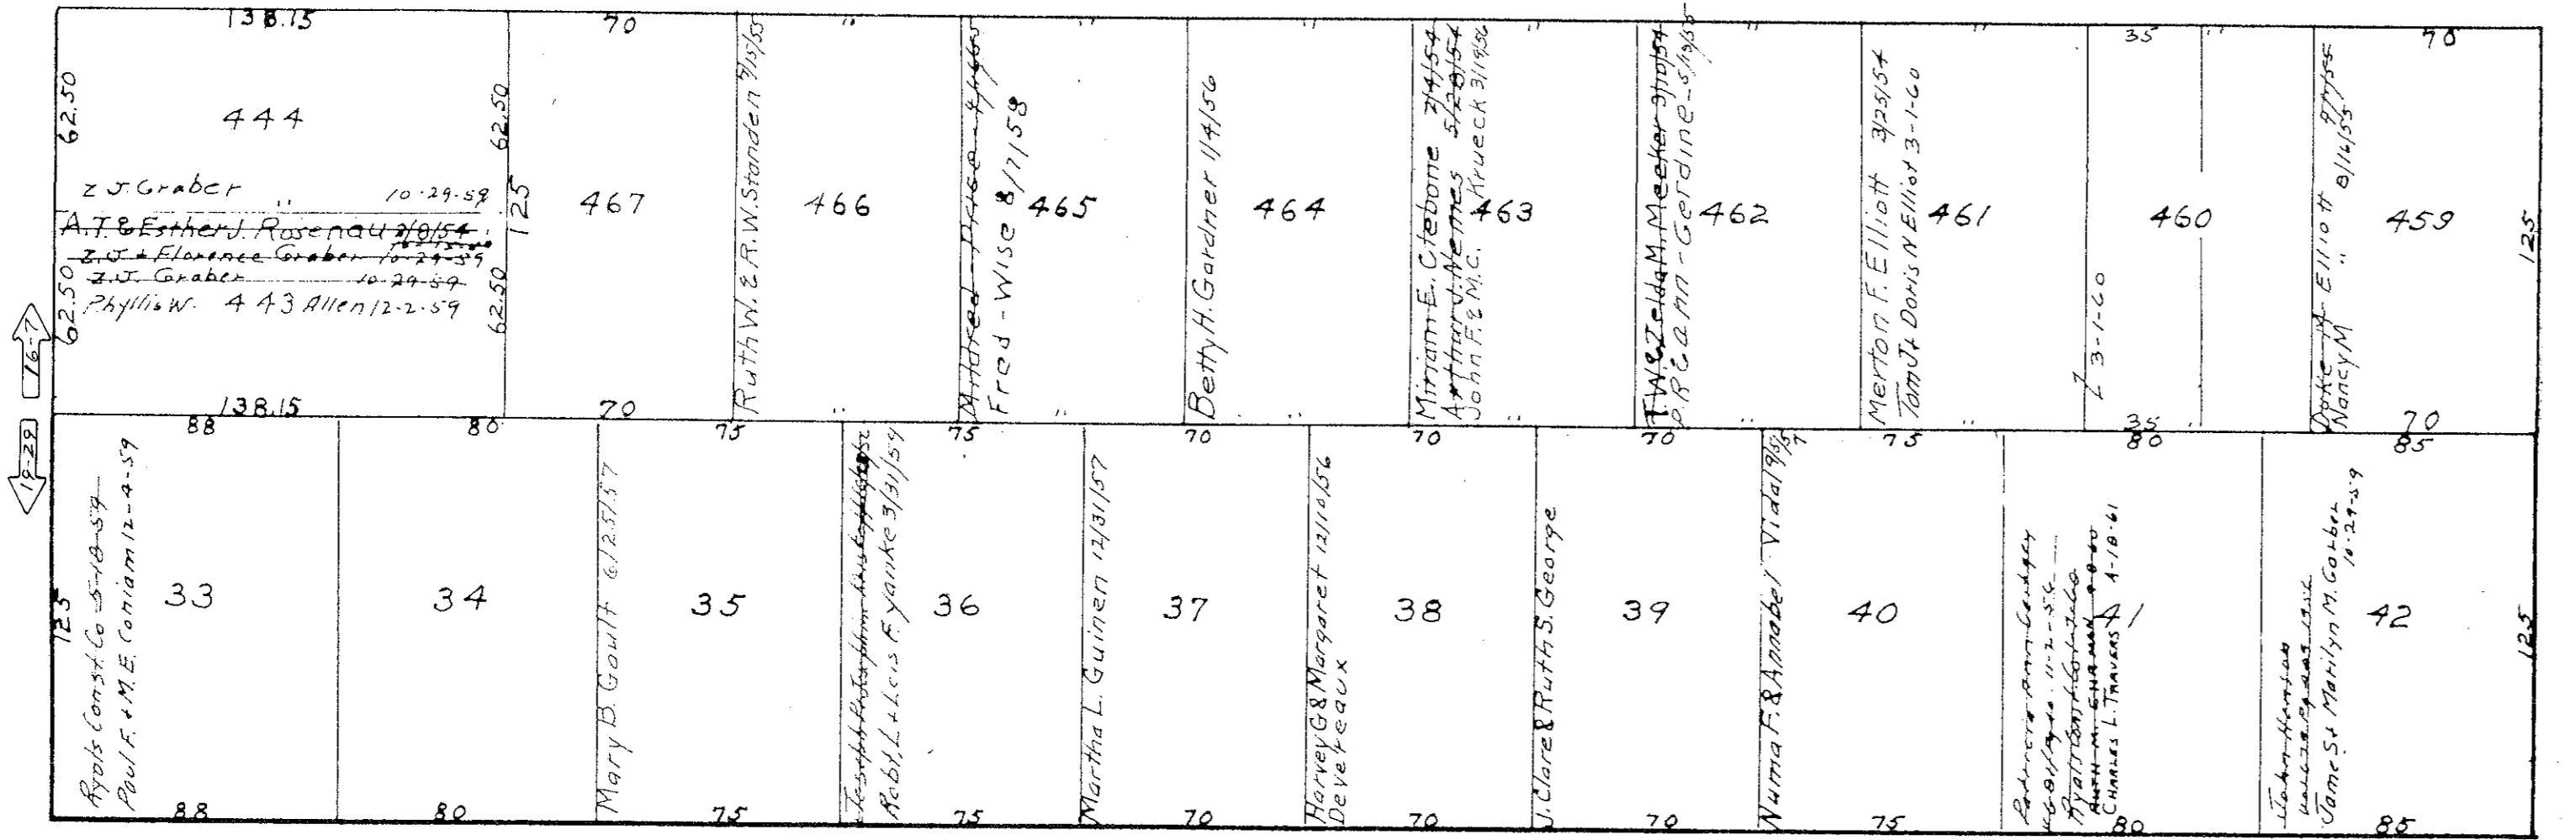 138.15 70 " " " " " " 35 " 70
62.50 444 62.50
Z J. Graber " 10-29-59
A.T. & Esther J. Rosenau 2/8/54
Z.J. + Florence Graber 10-29-59
Z.J. Graber 10-29-59
Phyllis W. 443 Allen 12-2-59
62.50 62.50
138.15
125 467
70
Ruth W. & R.W. Standen 7/15/55
466
"
Mildred Price
Fred - Wise 8/7/58
465
"
Betty H. Gardner 1/4/56
464
"
Miriam E. Clebone 2/4/54
Arthur J. Nemes 5/28/54
John F. & M.C. Krueck 3/19/56
463
"
T.W. & Zelda M. Meeker 3/10/54
462
"
Merton F. Elliott 3/25/54
Tom J + Doris N Elliot 3-1-60
461
"
3-1-60
460
35 "
Elliott
Nancy M " 8/16/55
459
125
70
16-7
19-29
88 80 75 75 70 70 70 75 80 85
125
Ryals Const. Co 5-18-59
Paul F. + M.E. Coniam 12-4-59
33
34
Mary B. Goult 6/25/57
35
Robt. L + Lois F. Yanke 3/31/59
36
Martha L. Guinen 12/31/57
37
Harvey G & Margaret 12/10/56
Devereaux
38
J. Clare & Ruth S. George
39
Numa F. & Annabel Vidal 9/5/57
40
11-2-56
Ryals Const. Co
Ruth M.
Charles L. Travers 4-18-61
41
James S + Marilyn M. Garber
10-29-59
42
125
88 80 75 75 70 70 70 75 80 85